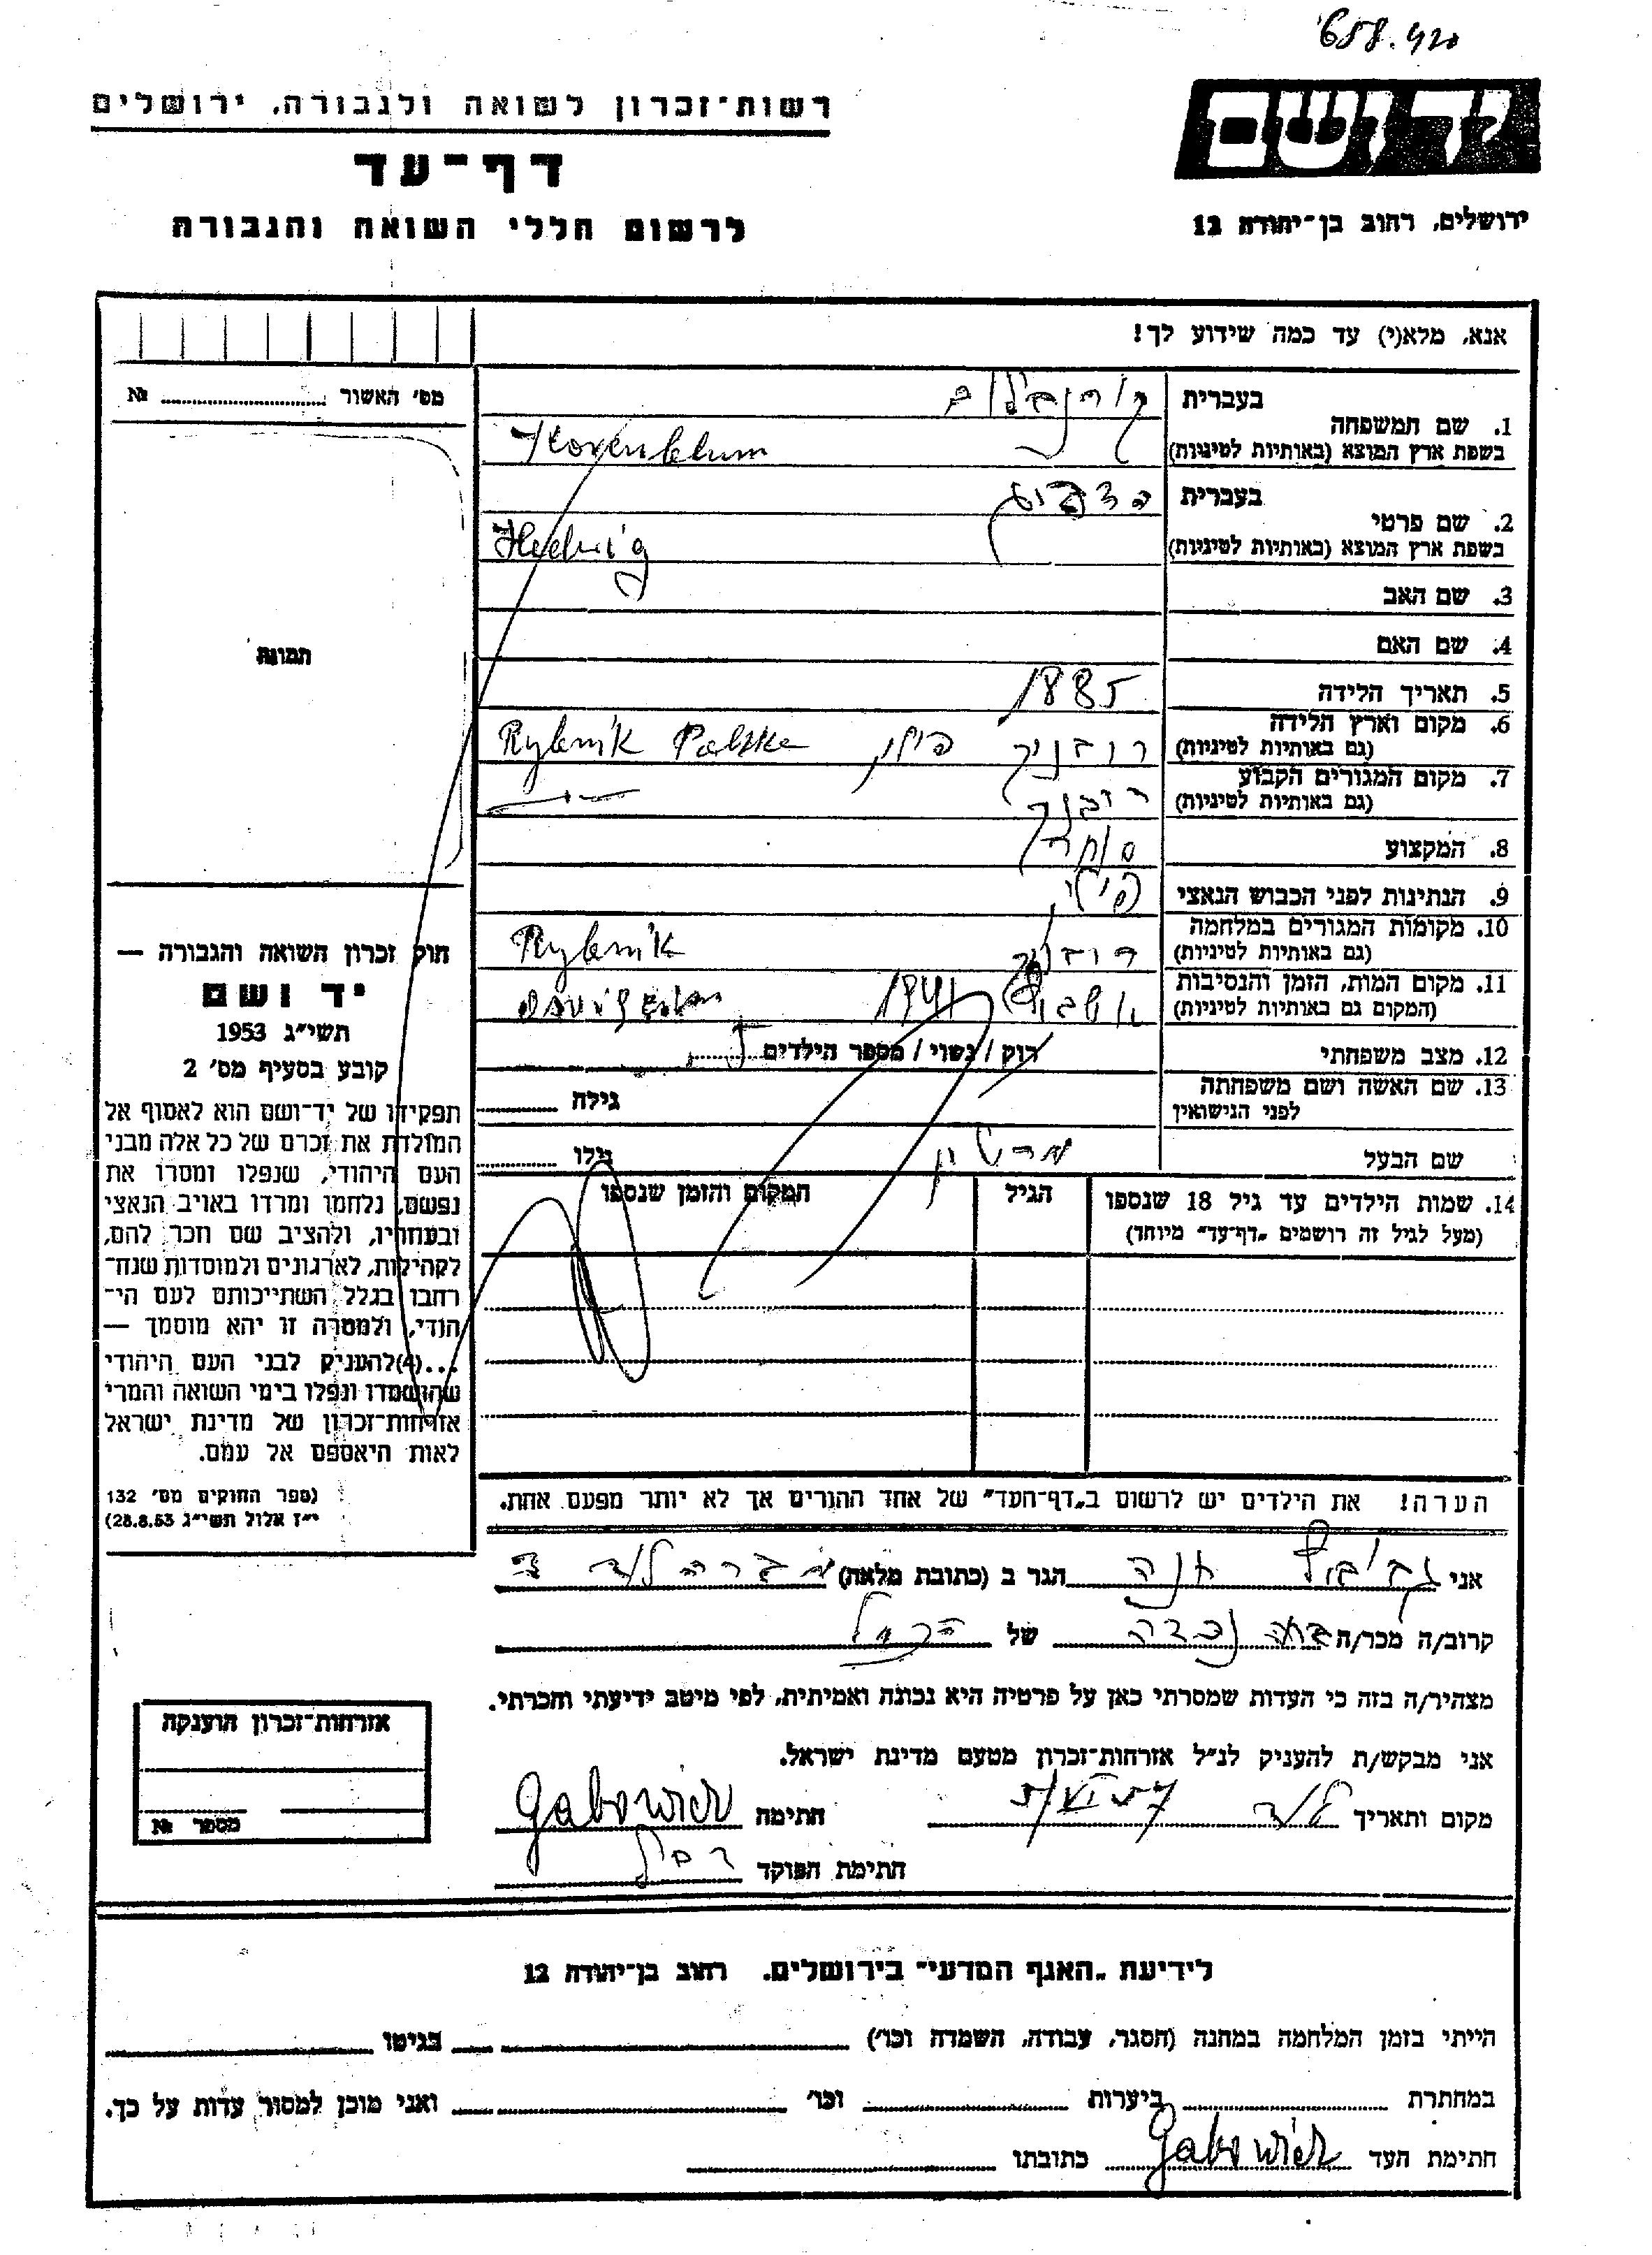 658.420
רשות־זכרון לשואה ולגבורה, ירושלים
יד ושם
דף־עד
לרשום חללי השואה והגבורה
ירושלים, רחוב בן־יהודה 12
אנא, מלא(י) עד כמה שידוע לך!
מס' האשור № 
תמונה
1. שם המשפחה
בעברית קורנבלום
בשפת ארץ המוצא (באותיות לטיניות) Korenblum
2. שם פרטי
בעברית
בשפת ארץ המוצא (באותיות לטיניות) Hedwig
3. שם האב
4. שם האם
5. תאריך הלידה 1885
6. מקום וארץ הלידה
(גם באותיות לטיניות) פולין Rybnik Polska
7. מקום המגורים הקבוע
(גם באותיות לטיניות)
8. המקצוע סוחרת
9. הנתינות לפני הכבוש הנאצי
10. מקומות המגורים במלחמה
(גם באותיות לטיניות) Rybnik
11. מקום המות, הזמן והנסיבות
(המקום גם באותיות לטיניות) 1941
12. מצב משפחתי רוק / נשוי / מספר הילדים
13. שם האשה ושם משפחתה
לפני הנישואין גילה
שם הבעל מרטין גילו
14. שמות הילדים עד גיל 18 שנספו הגיל המקום והזמן שנספו
(מעל לגיל זה רושמים „דף־עד" מיוחד)
חוק זכרון השואה והגבורה —
יד ושם
תשי״ג 1953
קובע בסעיף מס' 2
תפקידו של יד־ושם הוא לאסוף אל
המולדת את זכרם של כל אלה מבני
העם היהודי, שנפלו ומסרו את
נפשם, נלחמו ומרדו באויב הנאצי
ובעוזריו, ולהציב שם וזכר להם,
לקהילות, לארגונים ולמוסדות שנח־
רבו בגלל השתייכותם לעם הי־
הודי, ולמטרה זו יהא מוסמך —
...(4) להעניק לבני העם היהודי
שהושמדו ונפלו בימי השואה והמרי
אזרחות־זכרון של מדינת ישראל
לאות היאספם אל עמם.
(ספר החוקים מס' 132
י״ז אלול תשי״ג 28.8.53)
הערה! את הילדים יש לרשום ב„דף־העד" של אחד ההורים אך לא יותר מפעם אחת.
אני חנה הגר ב (כתובת מלאה)
קרוב/ה מכר/ה נכדה של הנ״ל
מצהיר/ה בזה כי העדות שמסרתי כאן על פרטיה היא נכונה ואמיתית, לפי מיטב ידיעתי והכרתי.
אני מבקש/ת להעניק לנ״ל אזרחות־זכרון מטעם מדינת ישראל.
מקום ותאריך לוד 5/VI 57 חתימה Gabowicz
חתימת הפוקד
אזרחות־זכרון הוענקה
מספר №
לידיעת „האגף המדעי" בירושלים. רחוב בן־יהודה 12
הייתי בזמן המלחמה במחנה (הסגר, עבודה, השמדה וכו') בגיטו
במחתרת ביערות וכו' ואני מוכן למסור עדות על כך.
חתימת העד Gabowicz כתובתו